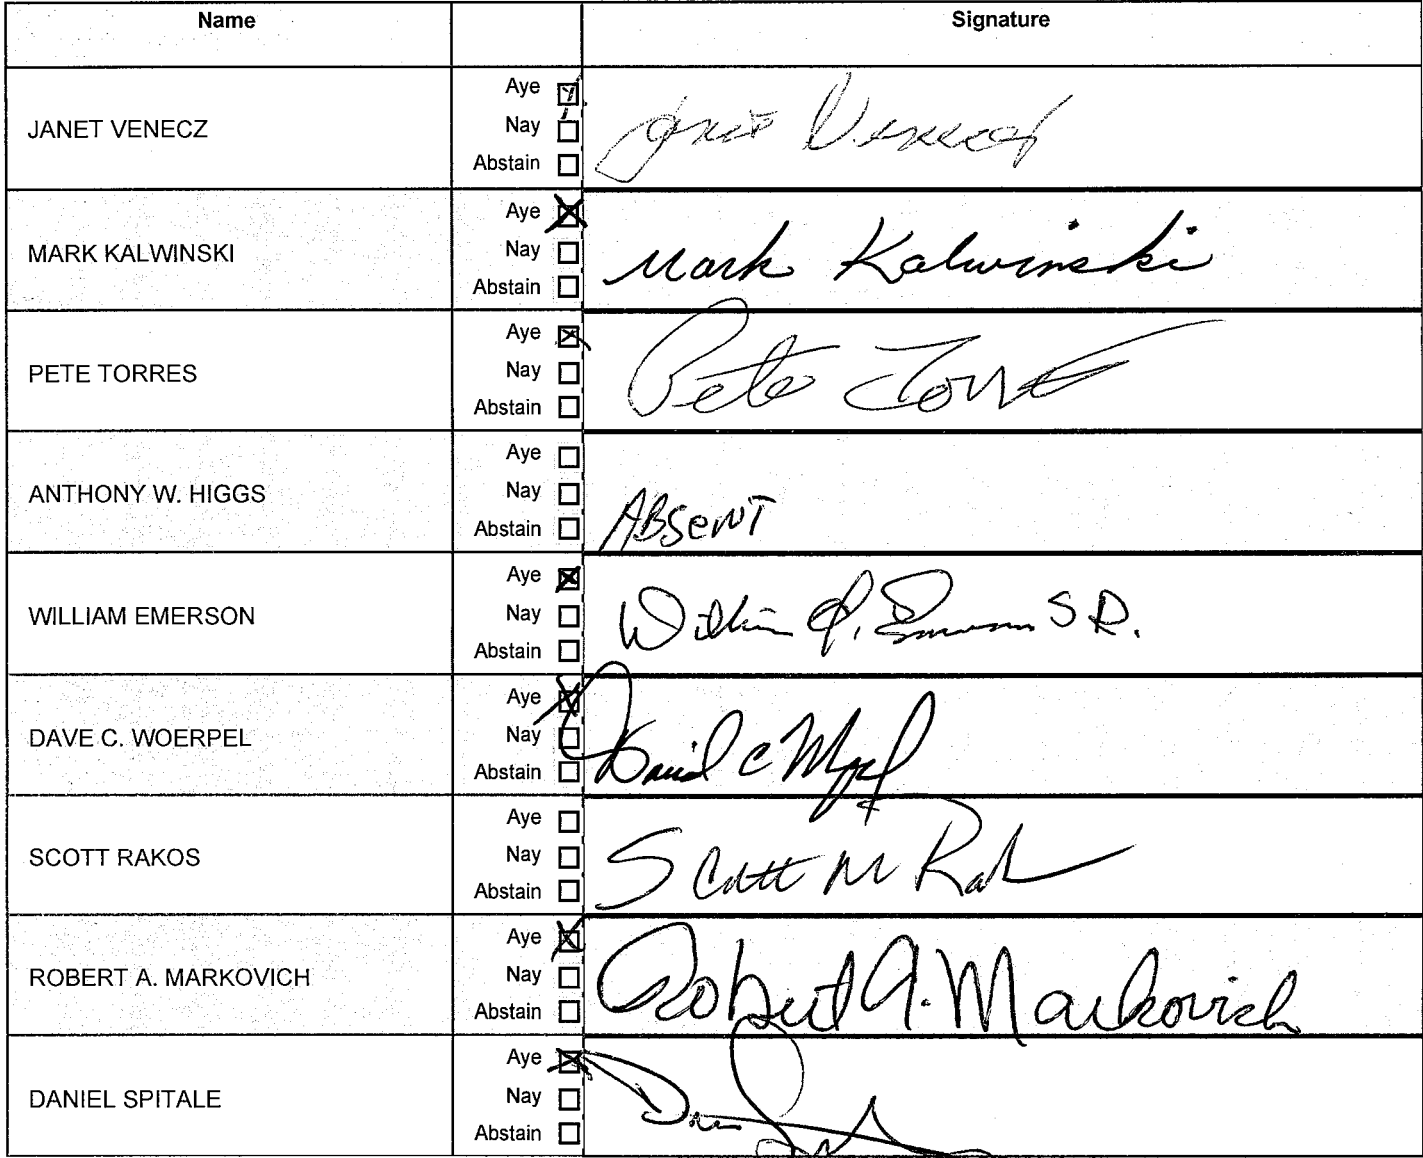 Name Signature
JANET VENECZ
Aye
Nay
Abstain
Venecz
MARK KALWINSKI
Aye
Nay
Abstain
Mark Kalwinski
PETE TORRES
Aye
Nay
Abstain
Pete Torres
ANTHONY W. HIGGS
Aye
Nay
Abstain
ABSENT
WILLIAM EMERSON
Aye
Nay
Abstain
William J. Emerson SR.
DAVE C. WOERPEL
Aye
Nay
Abstain
David C
SCOTT RAKOS
Aye
Nay
Abstain
Scott M Rak
ROBERT A. MARKOVICH
Aye
Nay
Abstain
Robert A. Markovich
DANIEL SPITALE
Aye
Nay
Abstain